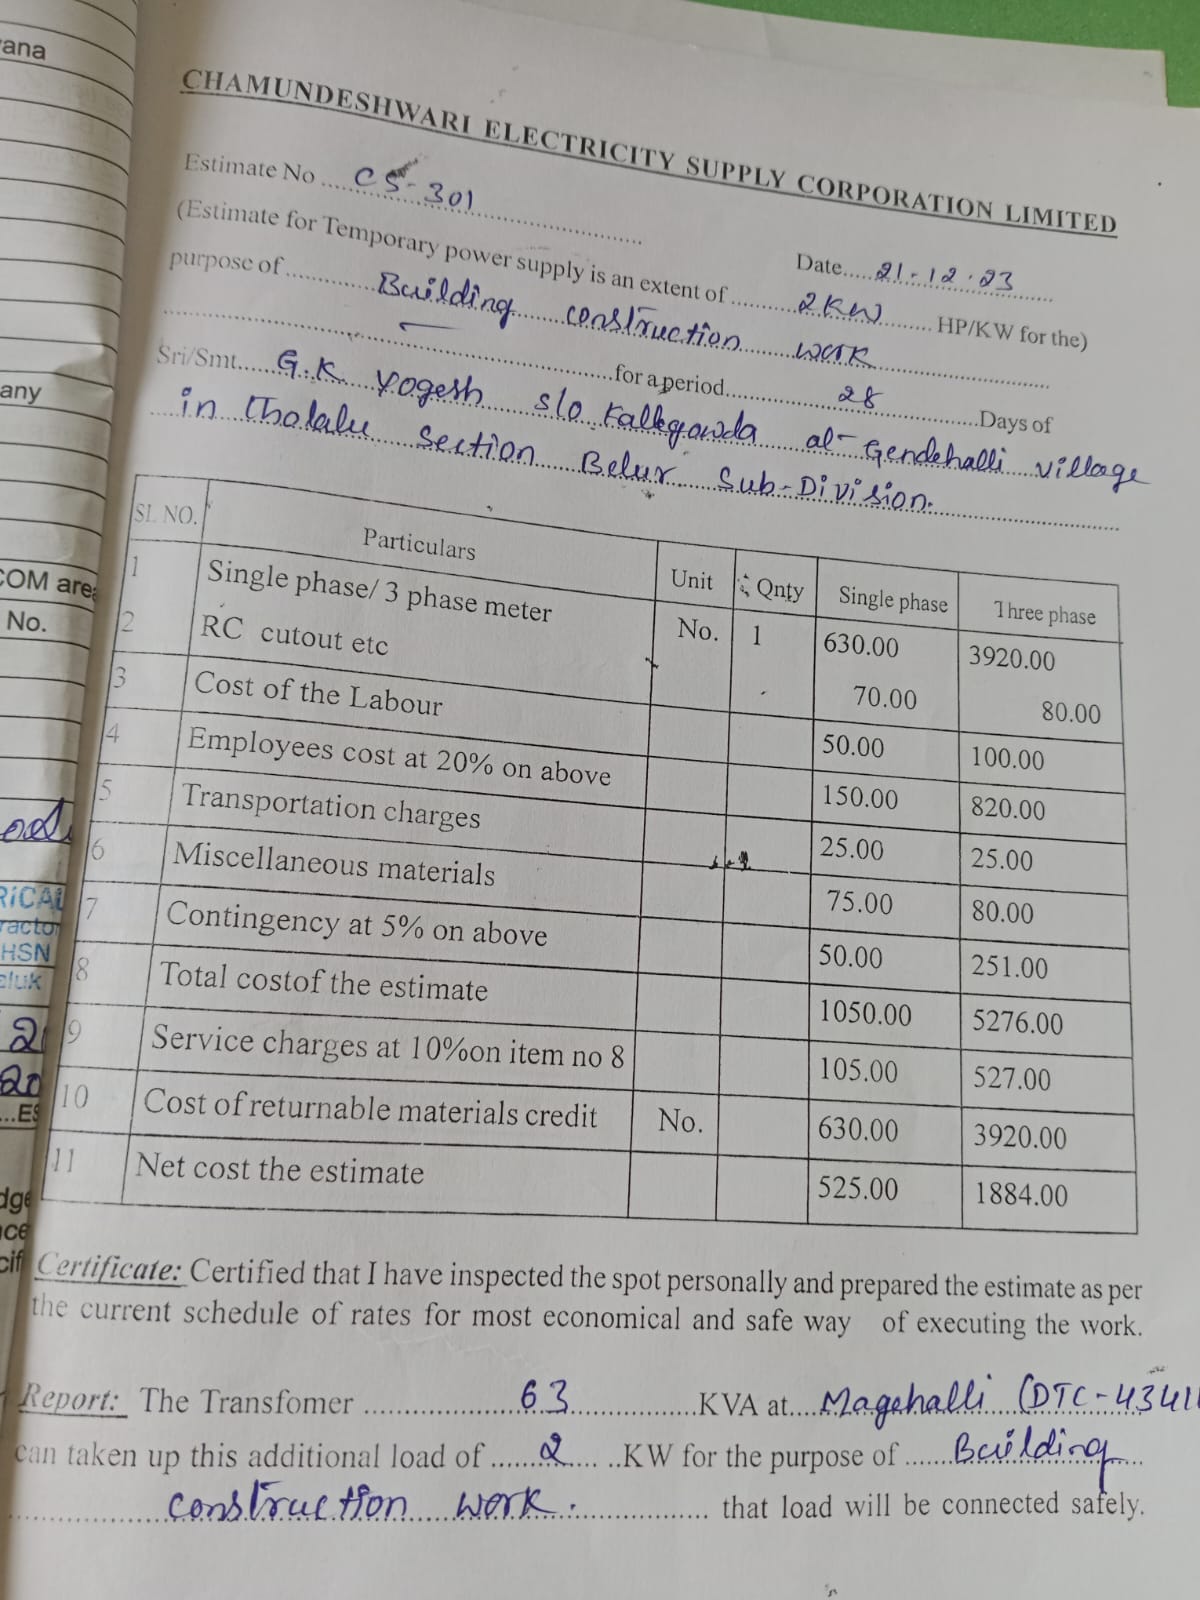 CHAMUNDESHWARI ELECTRICITY SUPPLY CORPORATION LIMITED
Estimate No ..... CS-301 ..........
Date..... 21-12-23 ..........
(Estimate for Temporary power supply is an extent of .......... 2KW .......... HP/KW for the)
purpose of .......... Building construction work ..........
.......... for a period .......... 28 .......... Days of
Sri/Smt..... G.K yogesh s/o Kallegowda at Gendehalli village
in Tholalu Section Belur Sub-Division.
SI. NO. Particulars Unit Qnty Single phase Three phase
1 Single phase/ 3 phase meter No. 1 630.00 3920.00
2 RC cutout etc 70.00 80.00
3 Cost of the Labour 50.00 100.00
4 Employees cost at 20% on above 150.00 820.00
5 Transportation charges 25.00 25.00
6 Miscellaneous materials 75.00 80.00
7 Contingency at 5% on above 50.00 251.00
8 Total costof the estimate 1050.00 5276.00
9 Service charges at 10%on item no 8 105.00 527.00
10 Cost of returnable materials credit No. 630.00 3920.00
11 Net cost the estimate 525.00 1884.00
Certificate: Certified that I have inspected the spot personally and prepared the estimate as per
the current schedule of rates for most economical and safe way of executing the work.
Report: The Transfomer .......... 63 .......... KVA at.... Magehalli (DTC-4341
can taken up this additional load of ...... 2 .... ..KW for the purpose of ....... Building ....
.......... construction work. .......... that load will be connected safely.
any
COM area
No.